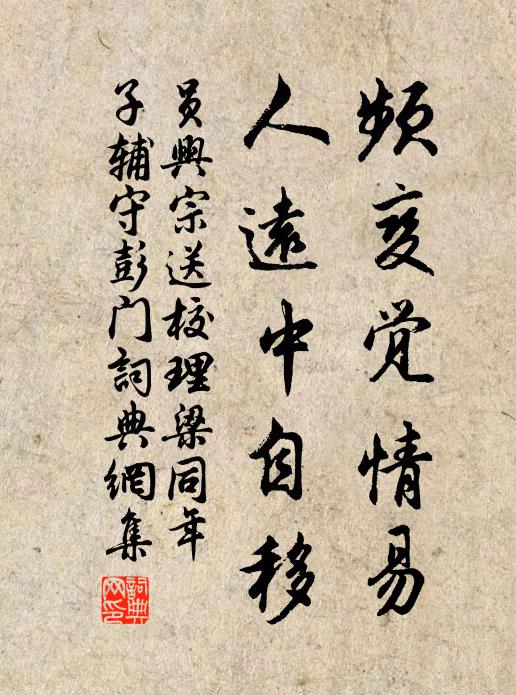 频变觉情易
人遠中自移
员興宗送校理梁同年
子辅守彭门詞典網集
詞典
网印